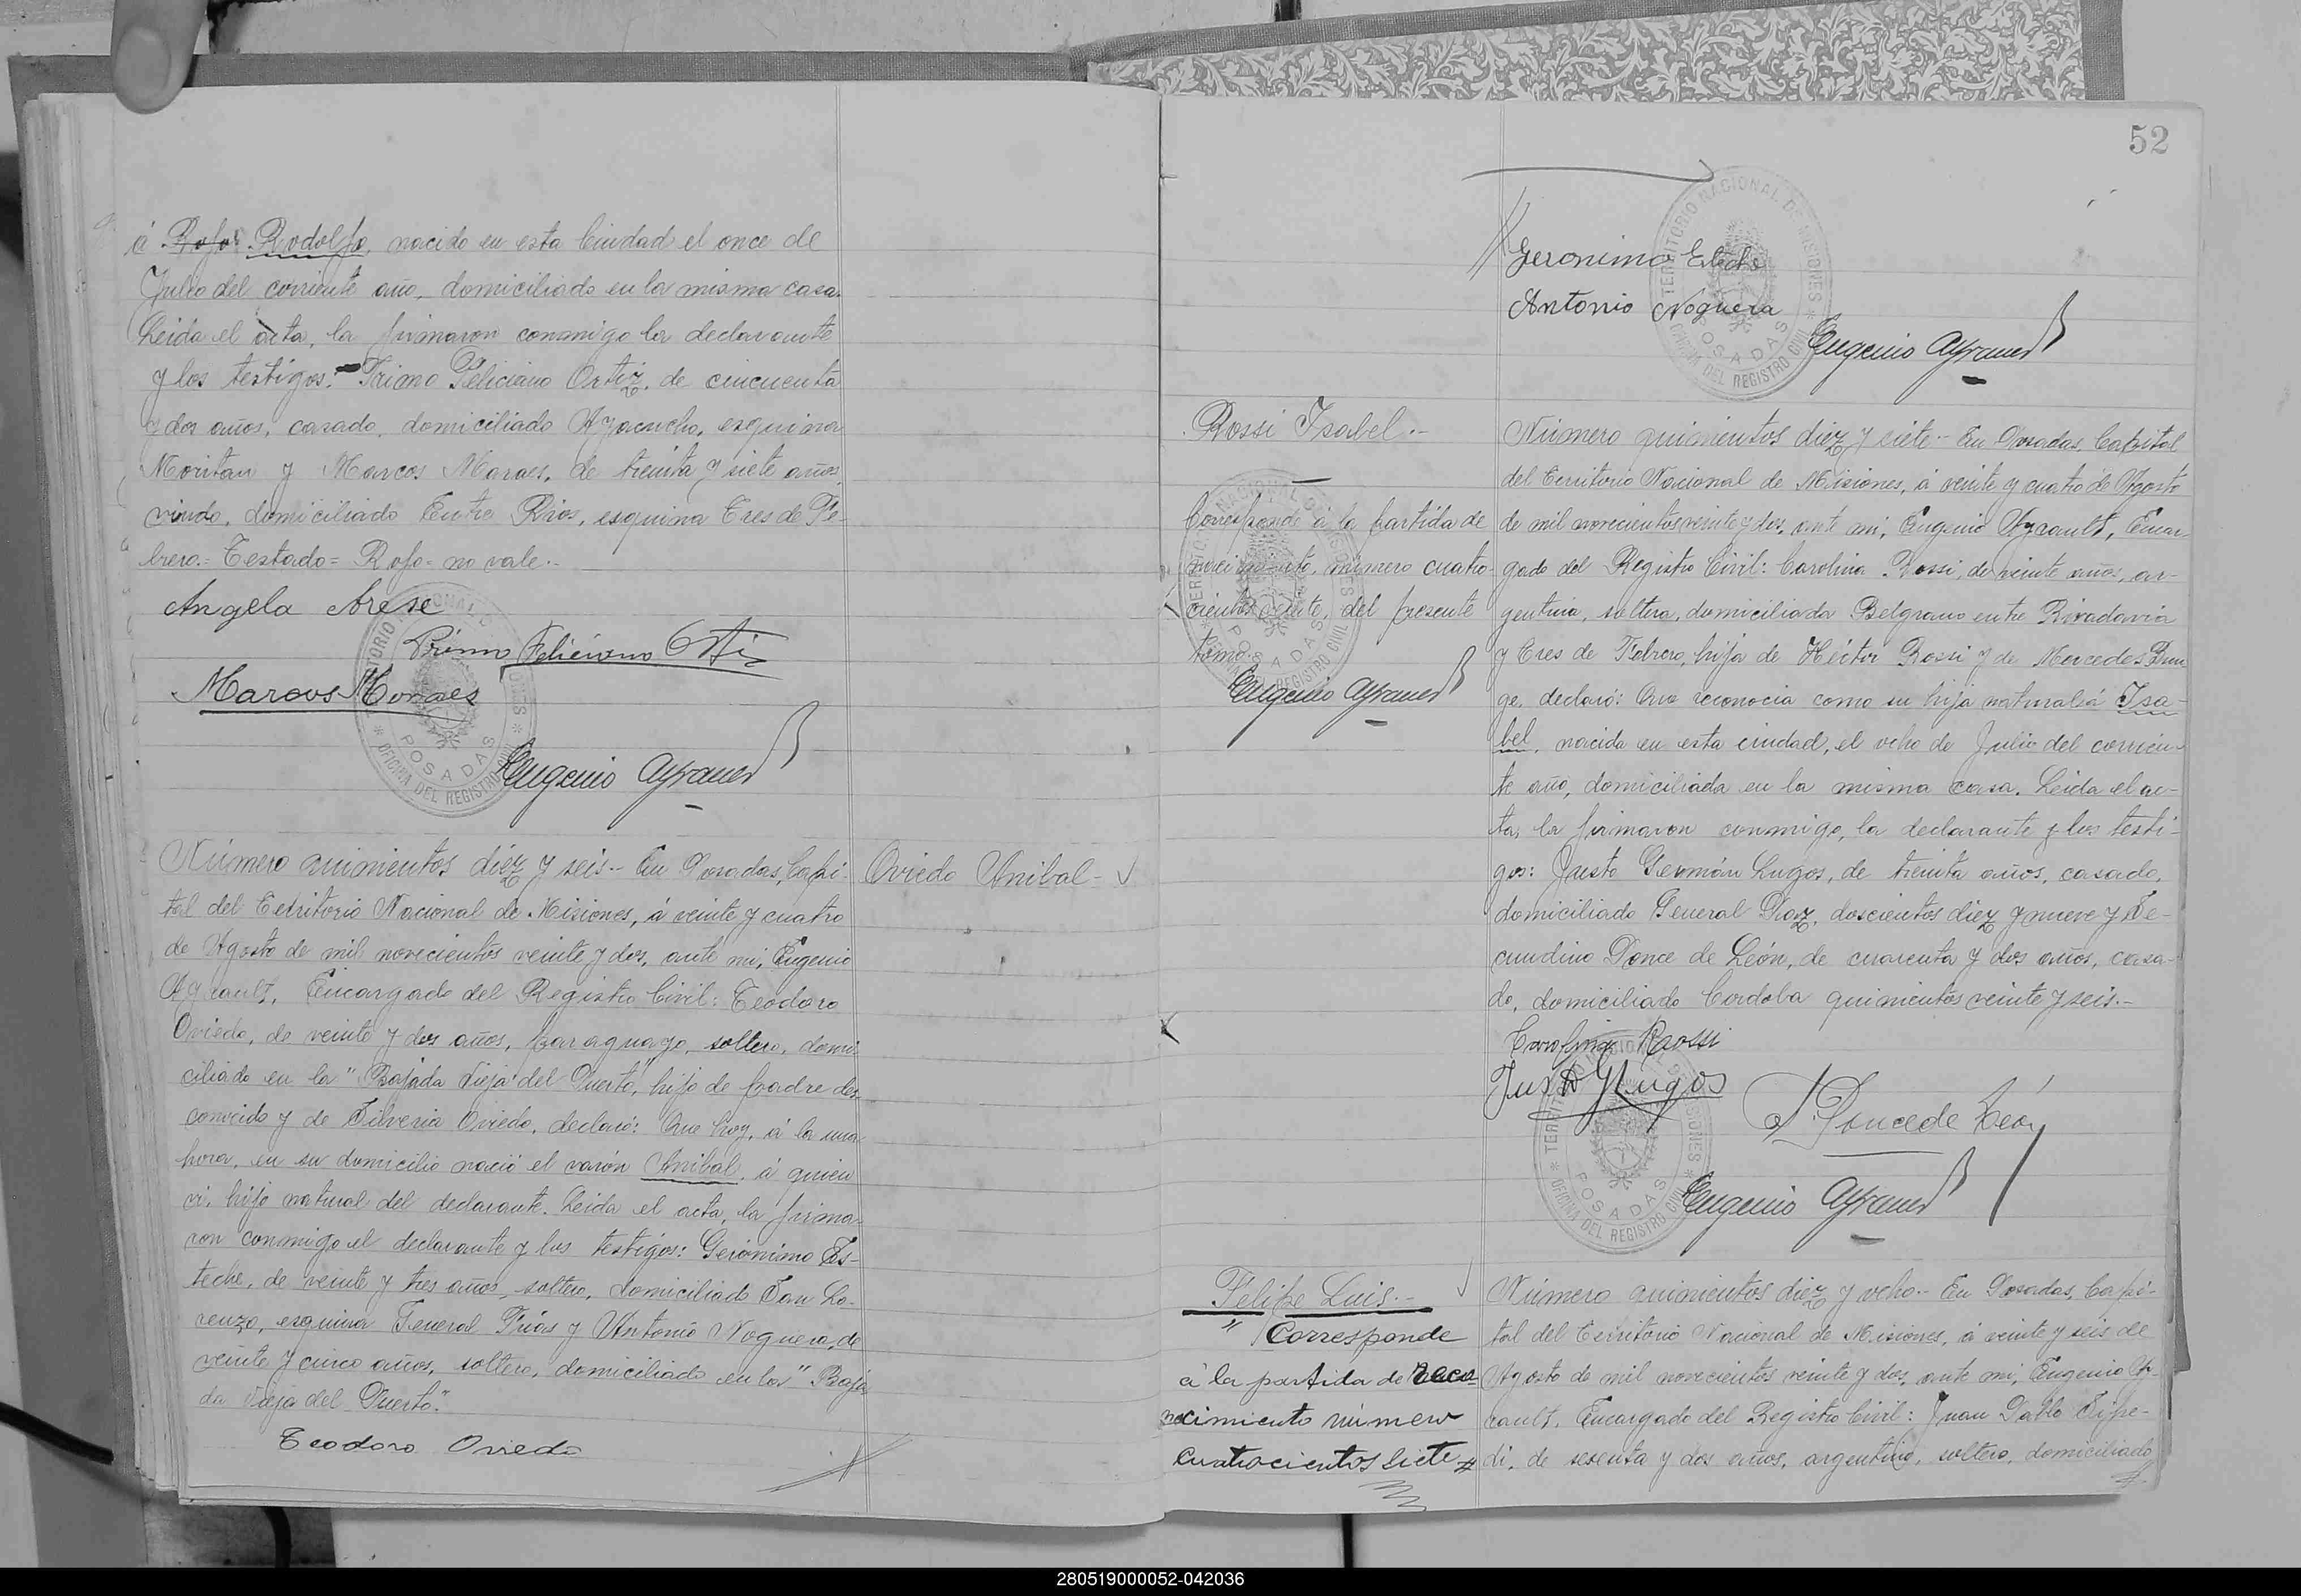 á Rofo Rodolfo, nacido en esta Ciudad el once de
Julio del corriente año, domiciliado en la misma casa.
Leida el acta, la firmaron conmigo la declarante
y los testigos: Primo Feliciano Ortiz, de cincuenta
y dos años, casado, domiciliado Ayacucho, esquina
y Marcos Moraes, de treinta y siete años,
viudo, domiciliado Entre Rios, esquina Tres de Fe-
brero.= Testado= Rofo= no vale.-
Angela Arese
Primo Feliciano Ortiz
Marcos Moraes
Eugenio Ayrault
TERRITORIO NACIONAL DE MISIONES
POSADAS
OFICINA DEL REGISTRO CIVIL
Oviedo Anibal-
Número quinientos diez y seis.- En Posadas, Capi-
tal del Territorio Nacional de Misiones, á veinte y cuatro
de Agosto de mil novecientos veinte y dos, ante mi, Eugenio
Ayrault, Encargado del Registro Civil: Teodoro
Oviedo, de veinte y dos años, paraguayo, soltero, domi
ciliado en la "Bajada Vieja del Puerto", hijo de padre des
conocido y de Silveria Oviedo, declaró: Que hoy, á la una
hora, en su domicilio nació el varón Anibal, á quien
vi, hijo natural del declarante. Leida el acta, la firma-
ron conmigo el declarante y los testigos: Gerónimo Es-
teche, de veinte y tres años, soltero, domiciliado San Lo-
renzo, esquina General Frias y Antonio Noguera, de
veinte y cinco años, soltero, domiciliado en la "Baja
da Vieja del Puerto."
Teodoro Oviedo
52
Geronimo
Antonio Noguera
Eugenio Ayrault
TERRITORIO NACIONAL DE MISIONES
POSADAS
OFICINA DEL REGISTRO CIVIL
Rossi Isabel.-
Corresponde á la partida de
nacimiento, número cuatro-
cientos siete, del presente
tomo.
Eugenio Ayrault
Número quinientos diez y siete.- En Posadas, Capital
del Territorio Nacional de Misiones, á veinte y cuatro de Agosto
de mil novecientos veinte y dos, ante mi, Eugenio Ayrault, Encar-
gado del Registro Civil: Carolina Rossi, de veinte años, ar-
gentina, soltera, domiciliada Belgrano entre Rivadavia
y Tres de Febrero, hija de Héctor Rossi y de Mercedes Bun
ge, declaró: Que reconocia como su hija natural á Isa-
bel, nacida en esta ciudad, el ocho de Julio del corrien-
te año, domiciliada en la misma casa. Leida el ac-
ta, la firmaron conmigo, la declarante y los testi-
gos: Justo Germán Lugos, de treinta años, casado,
domiciliado General Paz, doscientos diez y nueve y Se-
cundino Ponce de León, de cuarenta y dos años, casa-
do, domiciliado Cordoba quinientos veinte y seis.-
Carolina Rossi
Justo G Lugos
S. Ponce de León
Eugenio Ayrault
TERRITORIO NACIONAL DE MISIONES
POSADAS
OFICINA DEL REGISTRO CIVIL
Felipe Luis.-
Corresponde
á la partida de reco-
nocimiento número
Cuatrocientos Siete #
Número quinientos diez y ocho.- En Posadas, Capi-
tal del Territorio Nacional de Misiones, á veinte y seis de
Agosto de mil novecientos veinte y dos, ante mi, Eugenio Ay-
rault, Encargado del Registro Civil: Juan Pablo Sipe-
di, de sesenta y dos años, argentino, soltero, domiciliado
280519000052-042036